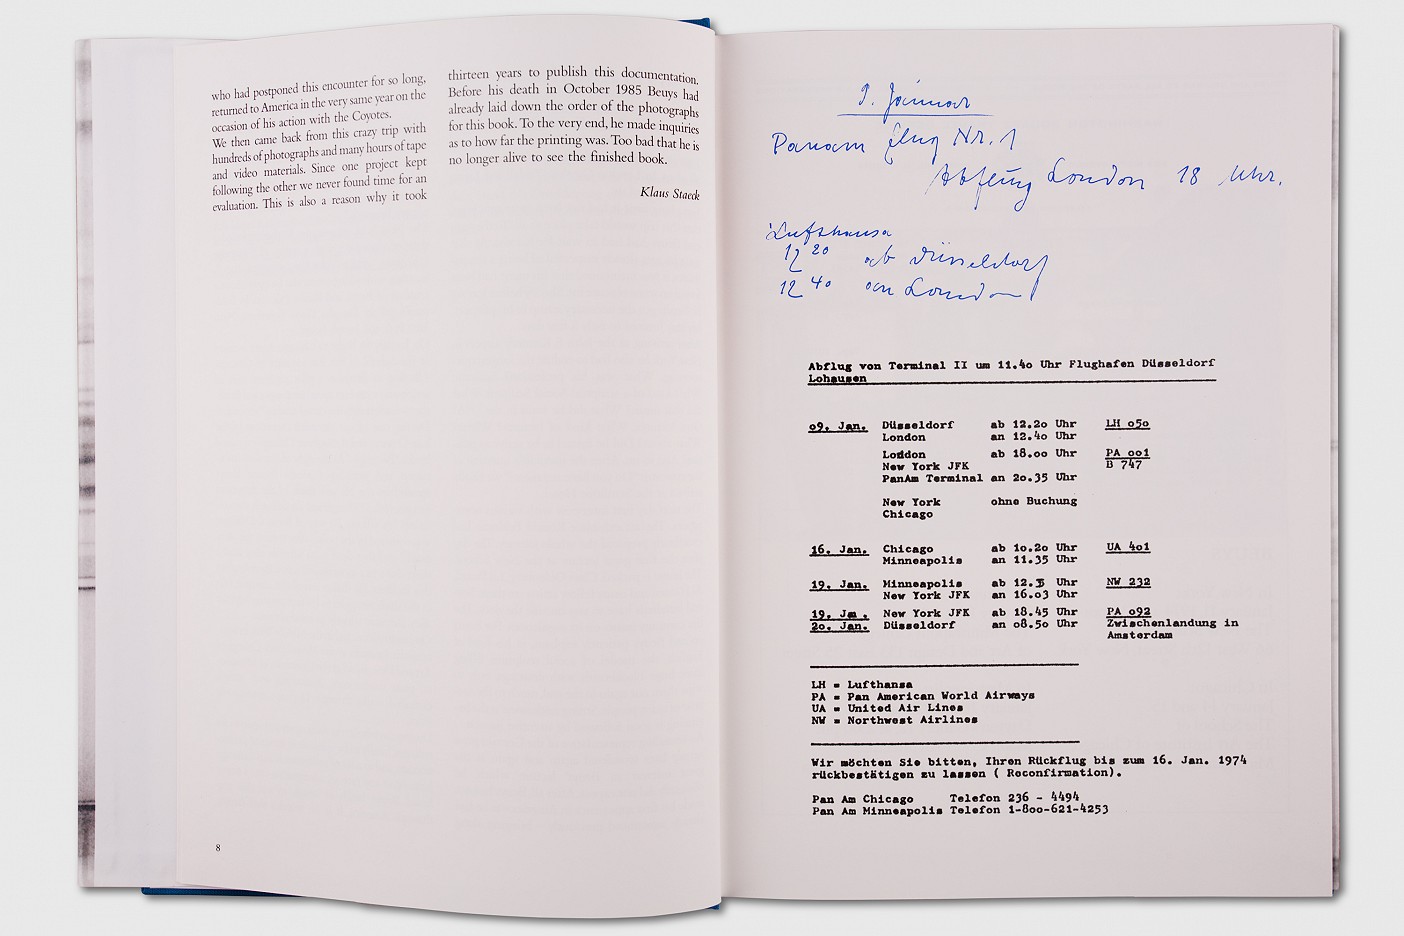 who had postponed this encounter for so long,
returned to America in the very same year on the
occasion of his action with the Coyotes.
We then came back from this crazy trip with
hundreds of photographs and many hours of tape
and video materials. Since one project kept
following the other we never found time for an
evaluation. This is also a reason why it took
thirteen years to publish this documentation.
Before his death in October 1985 Beuys had
already laid down the order of the photographs
for this book. To the very end, he made inquiries
as to how far the printing was. Too bad that he is
no longer alive to see the finished book.
Klaus Staeck
8
9. Januar
Panam flug Nr. 1
Abflug London 18 Uhr.
Lufthansa
12 20 ab Düsseldorf
12 40 an London
Abflug von Terminal II um 11.4o Uhr Flughafen Düsseldorf
Lohausen
o9. Jan. Düsseldorf ab 12.2o Uhr LH o5o
London an 12.4o Uhr
London ab 18.oo Uhr PA oo1
New York JFK B 747
PanAm Terminal an 2o.35 Uhr
New York ohne Buchung
Chicago
16. Jan. Chicago ab 1o.2o Uhr UA 4o1
Minneapolis an 11.35 Uhr
19. Jan. Minneapolis ab Uhr NW 232
New York JFK an 16.o3 Uhr
19. Jan. New York JFK ab 18.45 Uhr PA o92
2o. Jan. Düsseldorf an o8.5o Uhr Zwischenlandung in
Amsterdam
LH = Lufthansa
PA = Pan American World Airways
UA = United Air Lines
NW = Northwest Airlines
Wir möchten Sie bitten, Ihren Rückflug bis zum 16. Jan. 1974
rückbestätigen zu lassen ( Reconfirmation).
Pan Am Chicago Telefon 236 - 4494
Pan Am Minneapolis Telefon 1-8oo-621-4253